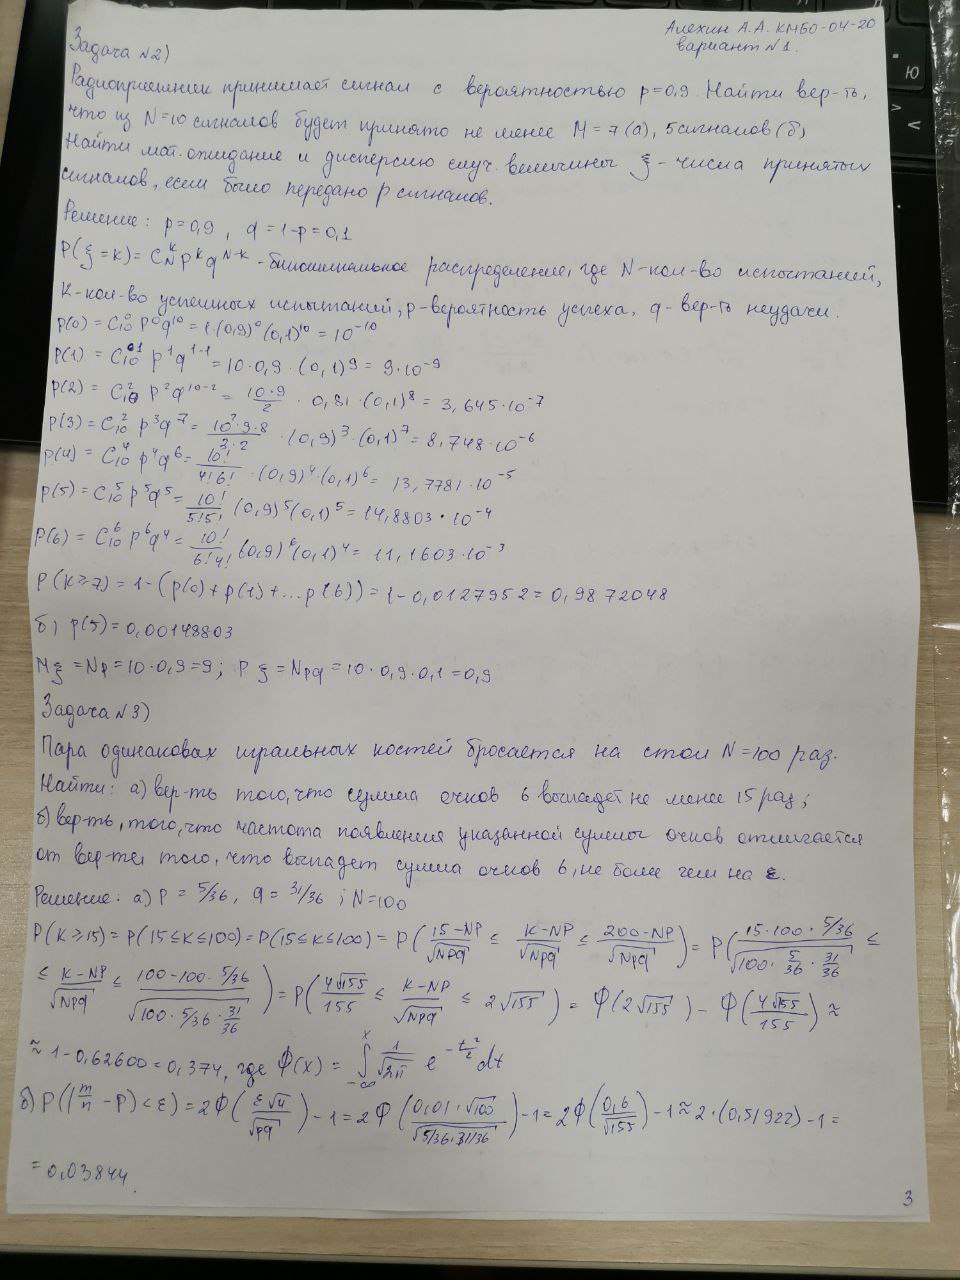 Алехин А.А. КМБО-04-20
вариант №1.
Задача №2)
Радиоприемник принимает сигнал с вероятностью p=0,9. Найти вер-ть,
что из N=10 сигналов будет принято не менее M=7(а), 5 сигналов (б)
Найти мат. ожидание и дисперсию случ. величины ξ - числа принятых
сигналов, если было передано p сигналов.
Решение: p=0,9, q=1-p=0,1
P(ξ=k)= C_N^k p^k q^{N-k} - биномиальное распределение, где N-кол-во испытаний,
K-кол-во успешных испытаний, p-вероятность успеха, q-вер-ть неудачи.
p(0) = C_10^0 p^0 q^10 = 1·(0,9)^0 (0,1)^10 = 10^-10
p(1) = C_10^1 p^1 q^{1-1} = 10·0,9·(0,1)^9 = 9·10^-9
p(2) = C_10^2 p^2 q^{10-2} = 10·9/2 · 0,81·(0,1)^8 = 3,645·10^-7
p(3) = C_10^2 p^3 q^7 = 10·9·8/3·2 ·(0,9)^3·(0,1)^7 = 8,748·10^-6
p(4) = C_10^4 p^4 q^6 = 10!/4!6! ·(0,9)^4·(0,1)^6 = 13,7781·10^-5
p(5) = C_10^5 p^5 q^5 = 10!/5!5! (0,9)^5 (0,1)^5 = 14,8803·10^-4
P(6) = C_10^6 p^6 q^4 = 10!/6!4! (0,9)^6 (0,1)^4 = 11,1603·10^-3
P(K≥7) = 1-(p(0)+p(1)+...p(6)) = 1-0,0127952 = 0,9872048
б) p(5)=0,00148803
Mξ = Np = 10·0,9=9; Pξ = Npq = 10·0,9·0,1=0,9
Задача №3)
Пара одинаковах игральных костей бросается на стол N=100 раз.
Найти: а) вер-ть того, что сумма очков 6 выпадет не менее 15 раз;
б) вер-ть, того, что частота появления указанной суммы очков отличается
от вер-ти того, что выпадет сумма очков 6, не более чем на ε.
Решение: а) P = 5/36, q = 31/36; N=100
P(K≥15) = P(15≤K≤100) = P(15≤K≤100) = P((15-NP)/√Npq ≤ (K-NP)/√Npq ≤ (200-NP)/√Npq) = P((15·100·5/36)/√(100·5/36·31/36) ≤
≤ (K-NP)/√Npq ≤ (100-100·5/36)/√(100·5/36·31/36)) = P(4√155/155 ≤ (K-NP)/√Npq ≤ 2√155) = Φ(2√155) - Φ(4√155/155) ≈
≈ 1-0,62600=0,374, где Φ(x) = ∫_{-∞}^{x} 1/√2π e^{-t²/2} dt
б) P(|m/n - P|<ε) = 2Φ(ε√n/√pq) - 1 = 2Φ(0,01·√100/√(5/36·31/36)) - 1 = 2Φ(0,6/√155) - 1 ≈ 2·(0,51922) - 1 =
= 0,03844
3